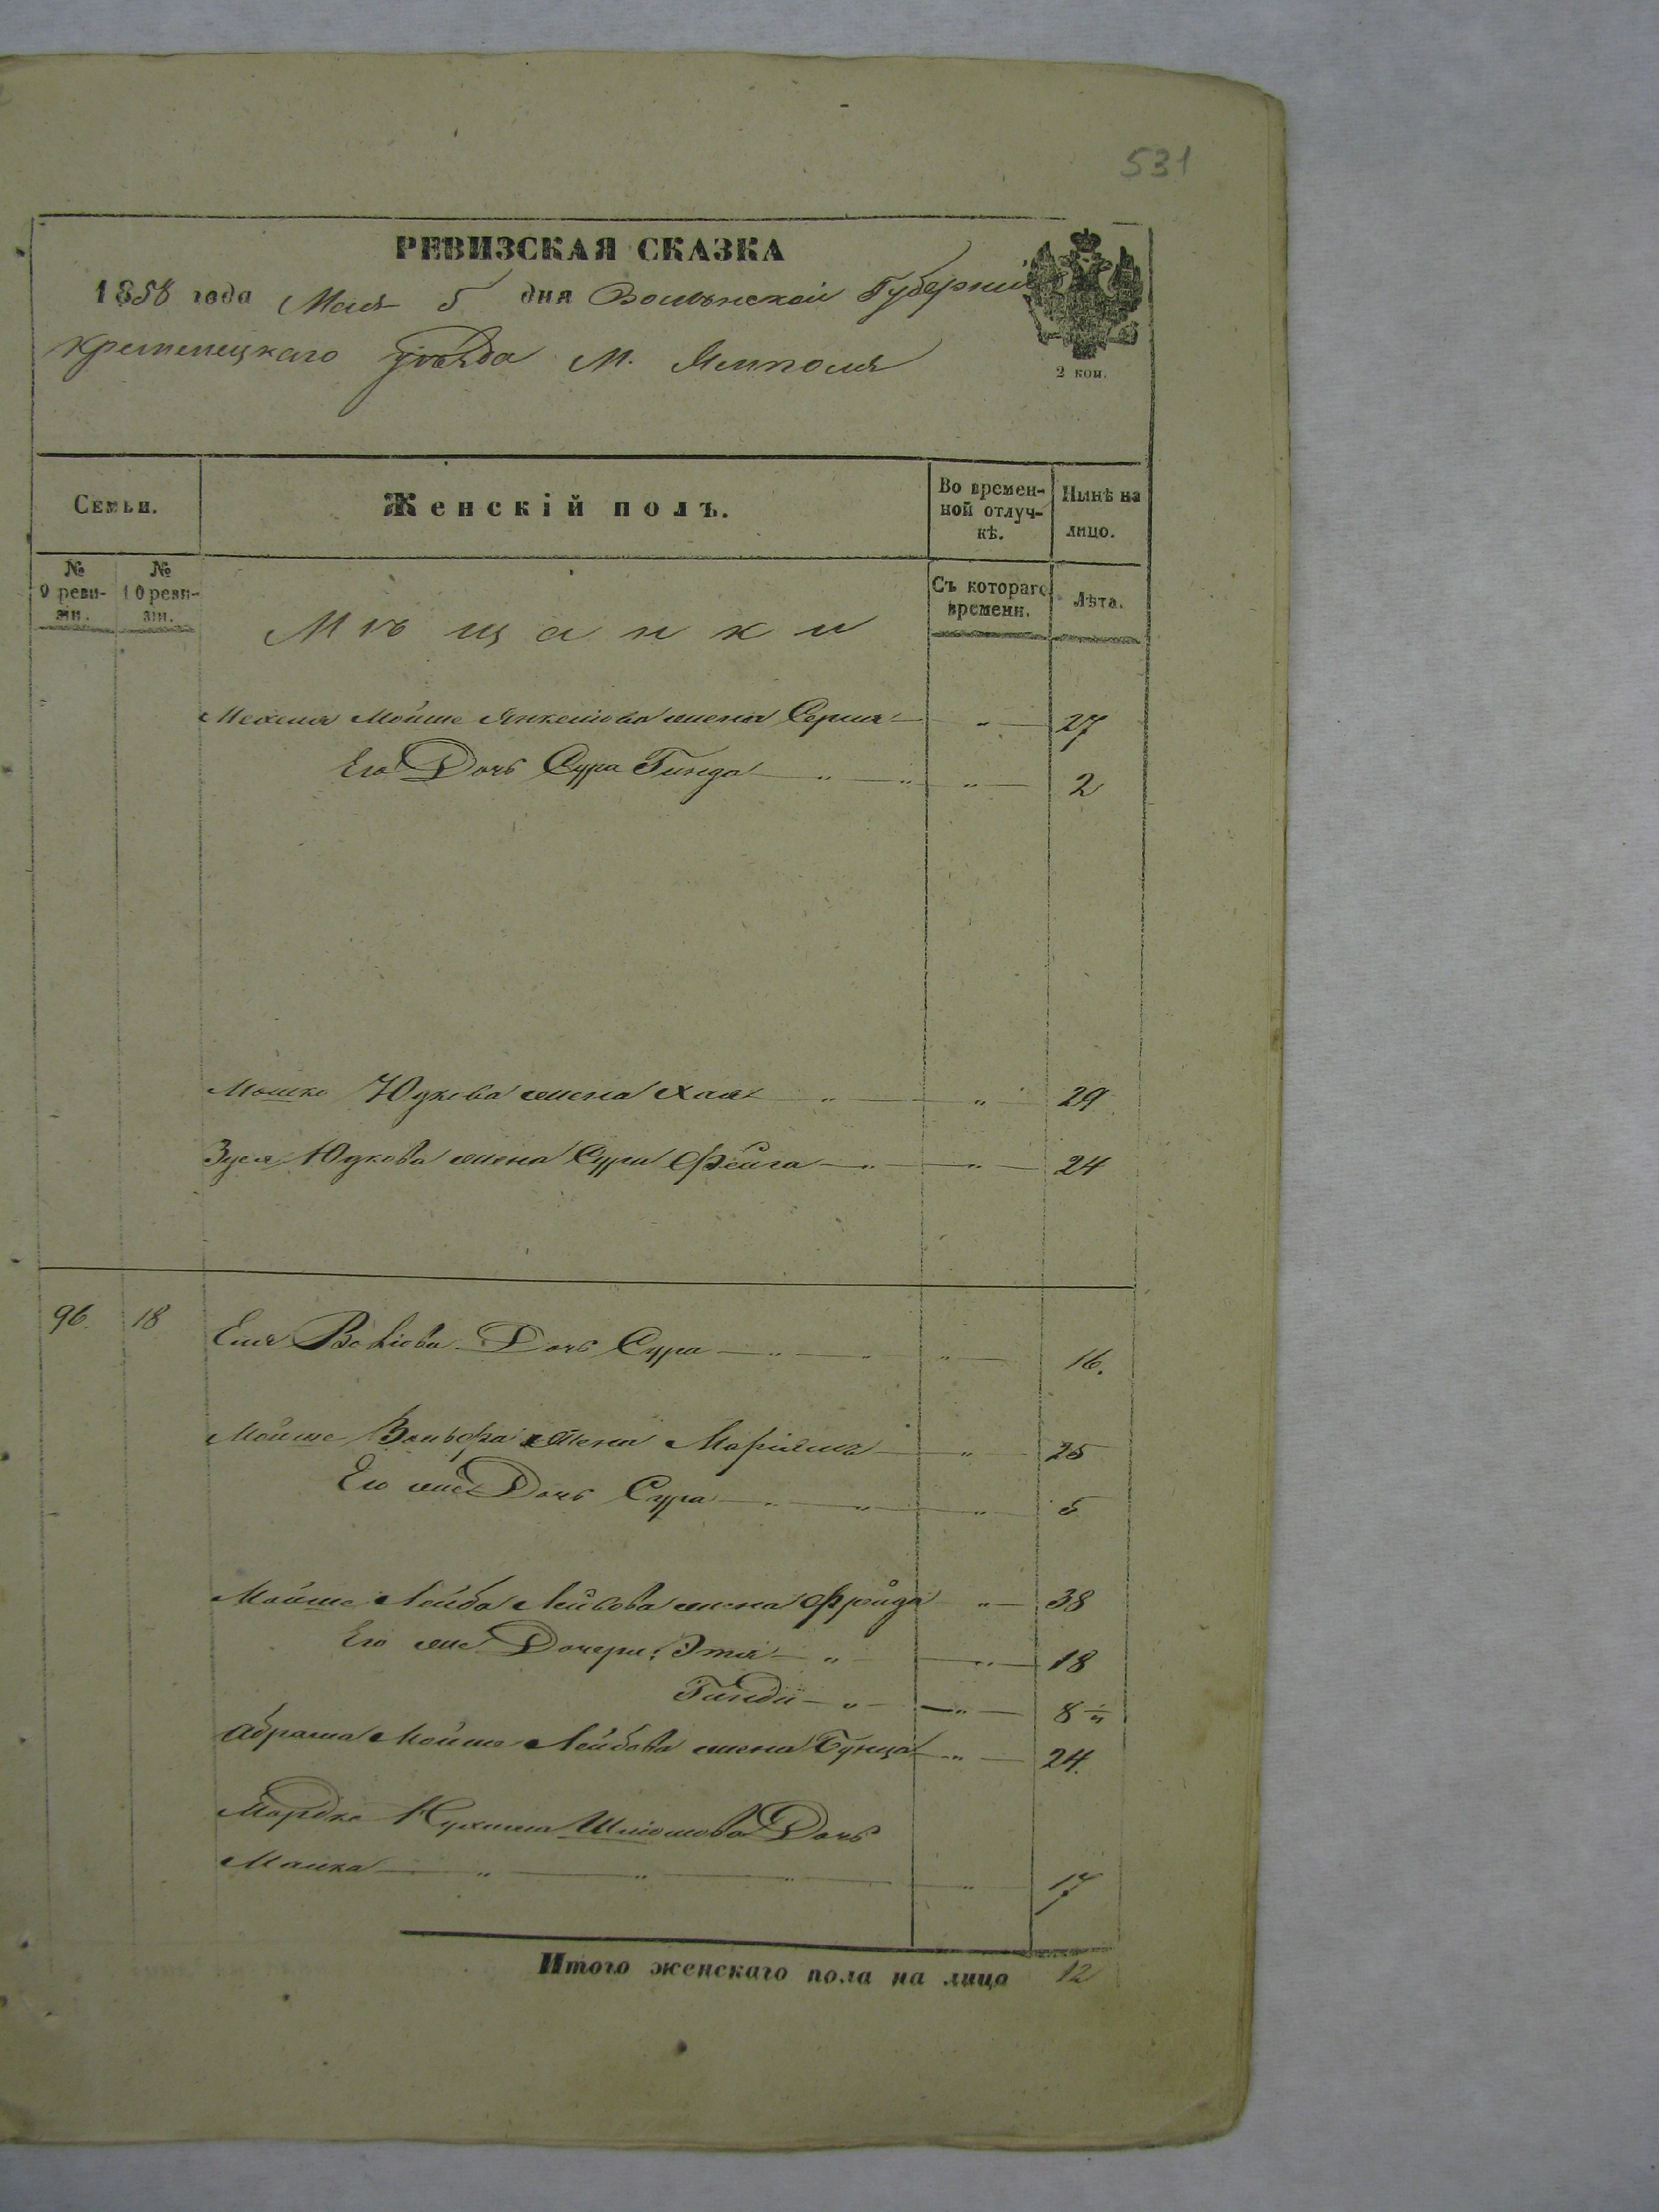 531
РЕВИЗСКАЯ СКАЗКА
1858 года Мая 5 дня Волынской Губернии
Кременецкаго уѣзда М. Ямполя
2 коп.
Семьи.
Женскій полъ.
Во времен-
ной отлуч-
кѣ.
Нынѣ на
лицо.
№
9 реви-
зіи.
№
10 реви-
зіи.
Съ котораго
времени.
Лѣта.
Мѣщанки
Мойше Янкелиова жена " 27
Его Дочь Сура Гинда " " " 2
Мошко Юдкова жена Хая " " 29
Зуся Юдкова жена Сура Фейга " " 24
96. 18 Дочь Сура " " " 16.
Мойше Вольфа жена Маріям " 25
Его же Дочь Сура " " " 5
Мойше Лейба Лейбова жена Фрейда " 38
Его же Дочери: Этя " " 18
" " 8
Абрама Мойше Лейбова жена " 24.
Мордко Шліомова Дочь
Малка " " " " 17
Итого женскаго пола на лицо 12